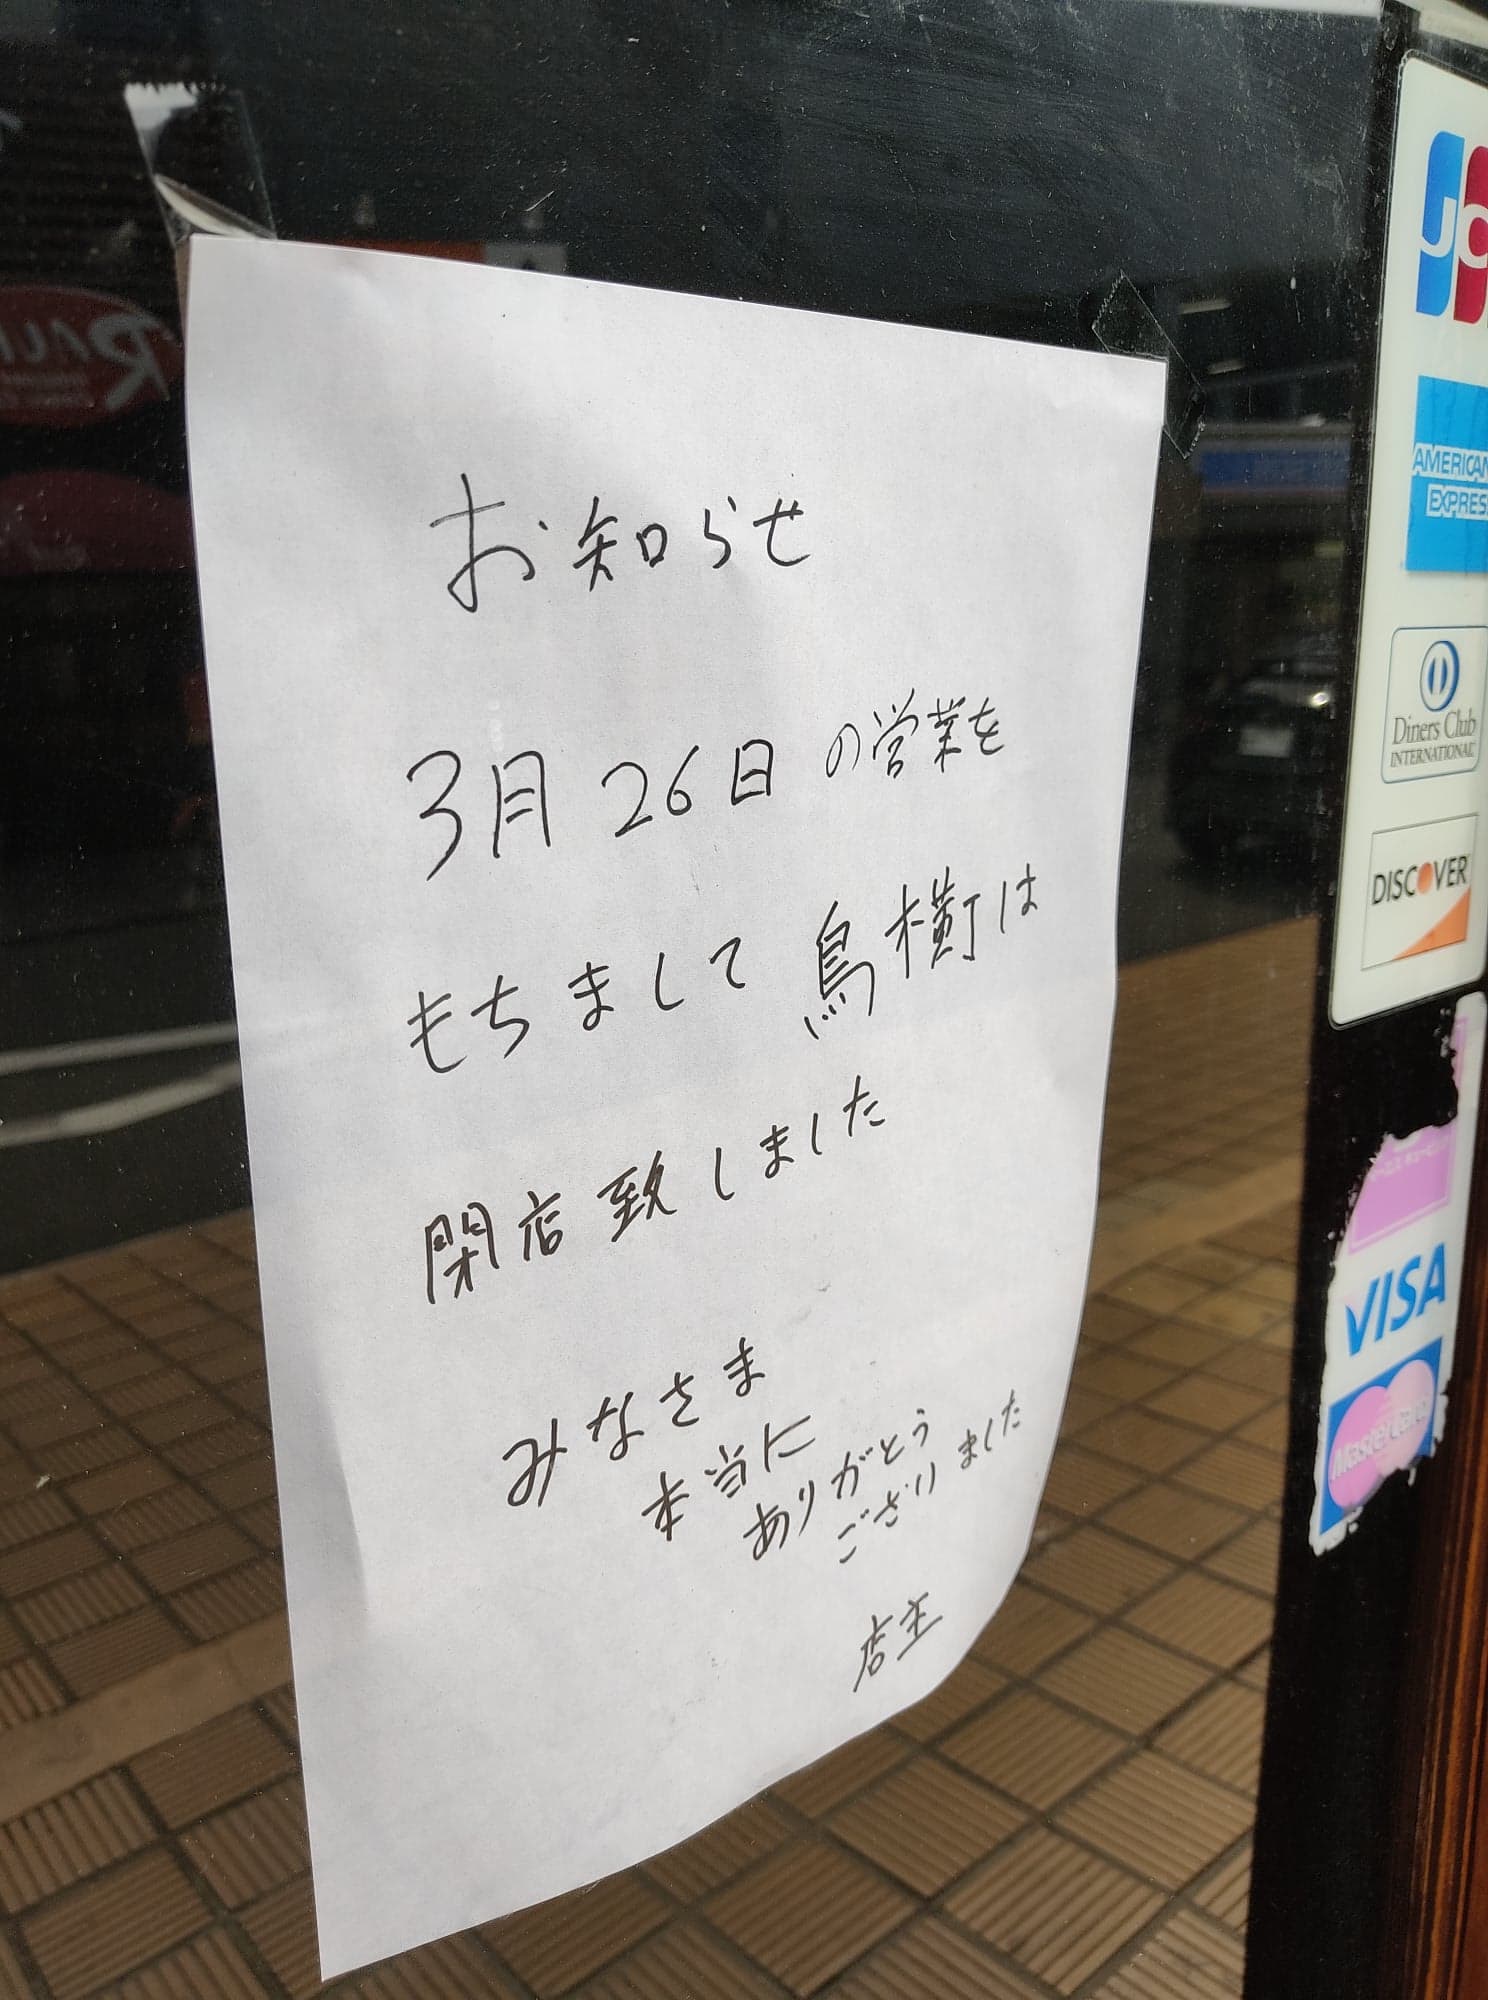 お知らせ
3月26日の営業を
もちまして鳥横は
閉店致しました
みなさま
本当に
ありがとう
ございました
店主
JC
AMERICAN
EXPRESS
Diners Club
INTERNATIONAL
DISCOVER
VISA
MasterCard